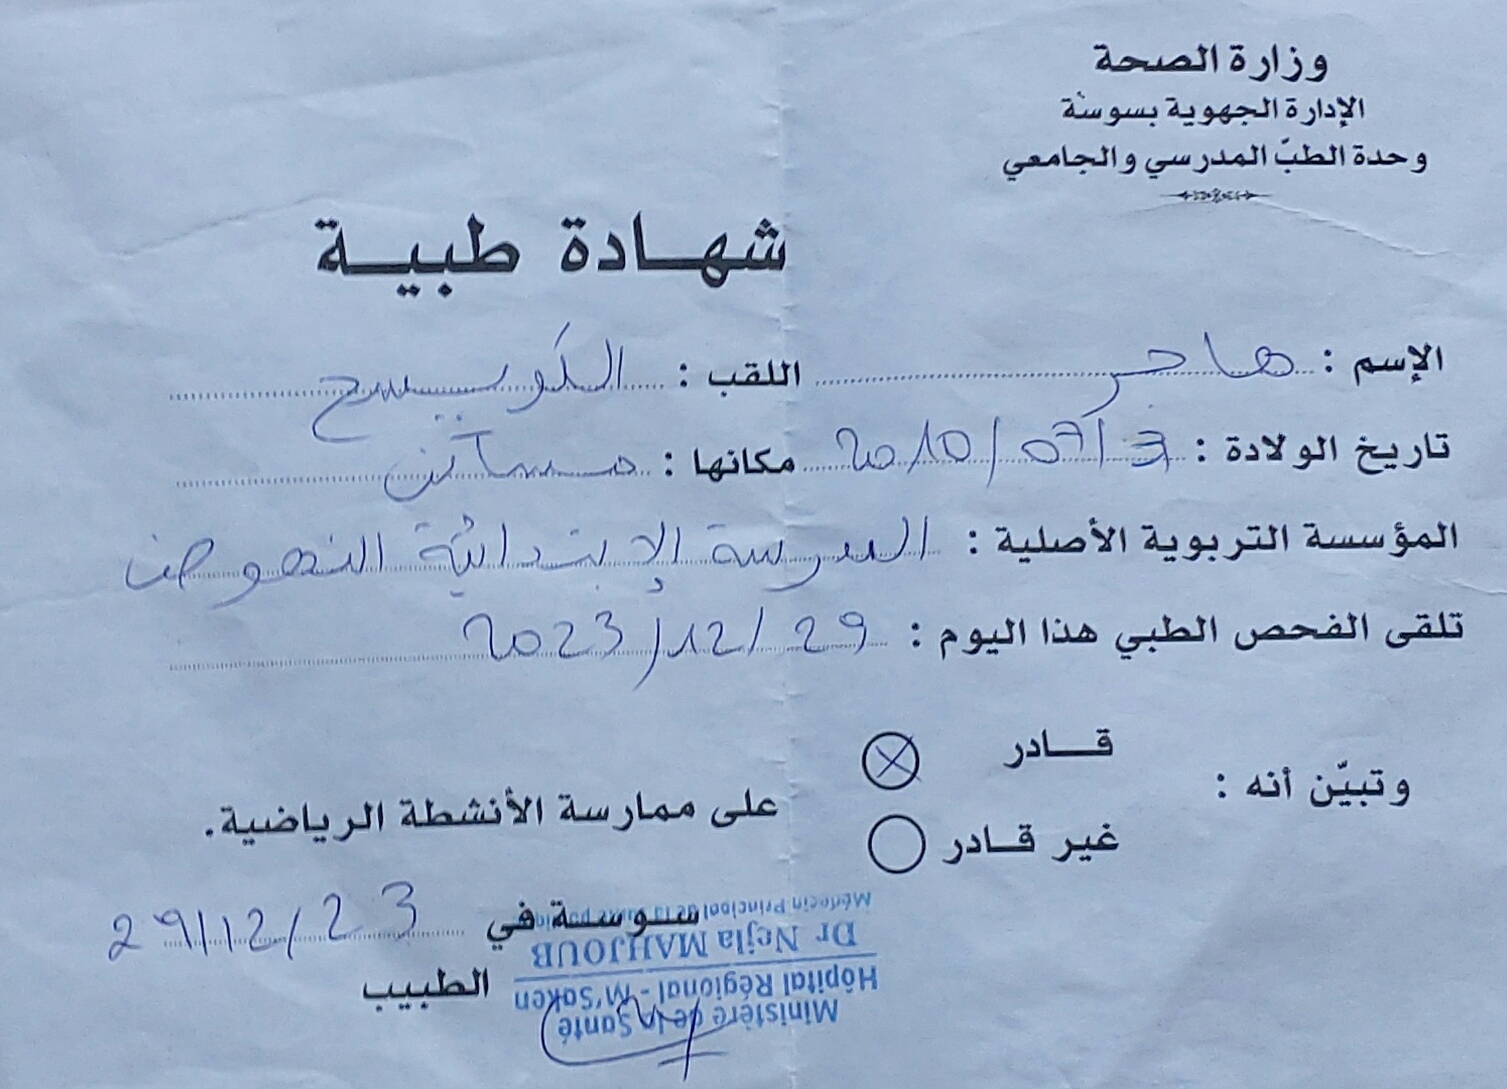 وزارة الصحة
الإدارة الجهوية بسوسة
وحدة الطبّ المدرسي والجامعي
شهادة طبية
الإسم : هاجر اللقب : الكوبيسح
تاريخ الولادة : 3/07/2010 مكانها : مساكن
المؤسسة التربوية الأصلية : المدرسة الإبتدائية النهوض
تلقى الفحص الطبي هذا اليوم : 29/12/2023
وتبيّن أنه :
قادر
غير قادر
على ممارسة الأنشطة الرياضية.
سوسة في 29/12/23
الطبيب
Ministère de la Santé
Hôpital Régional - M'Saken
Dr Nejla MAHJOUB
Médecin Principal de la Santé publique